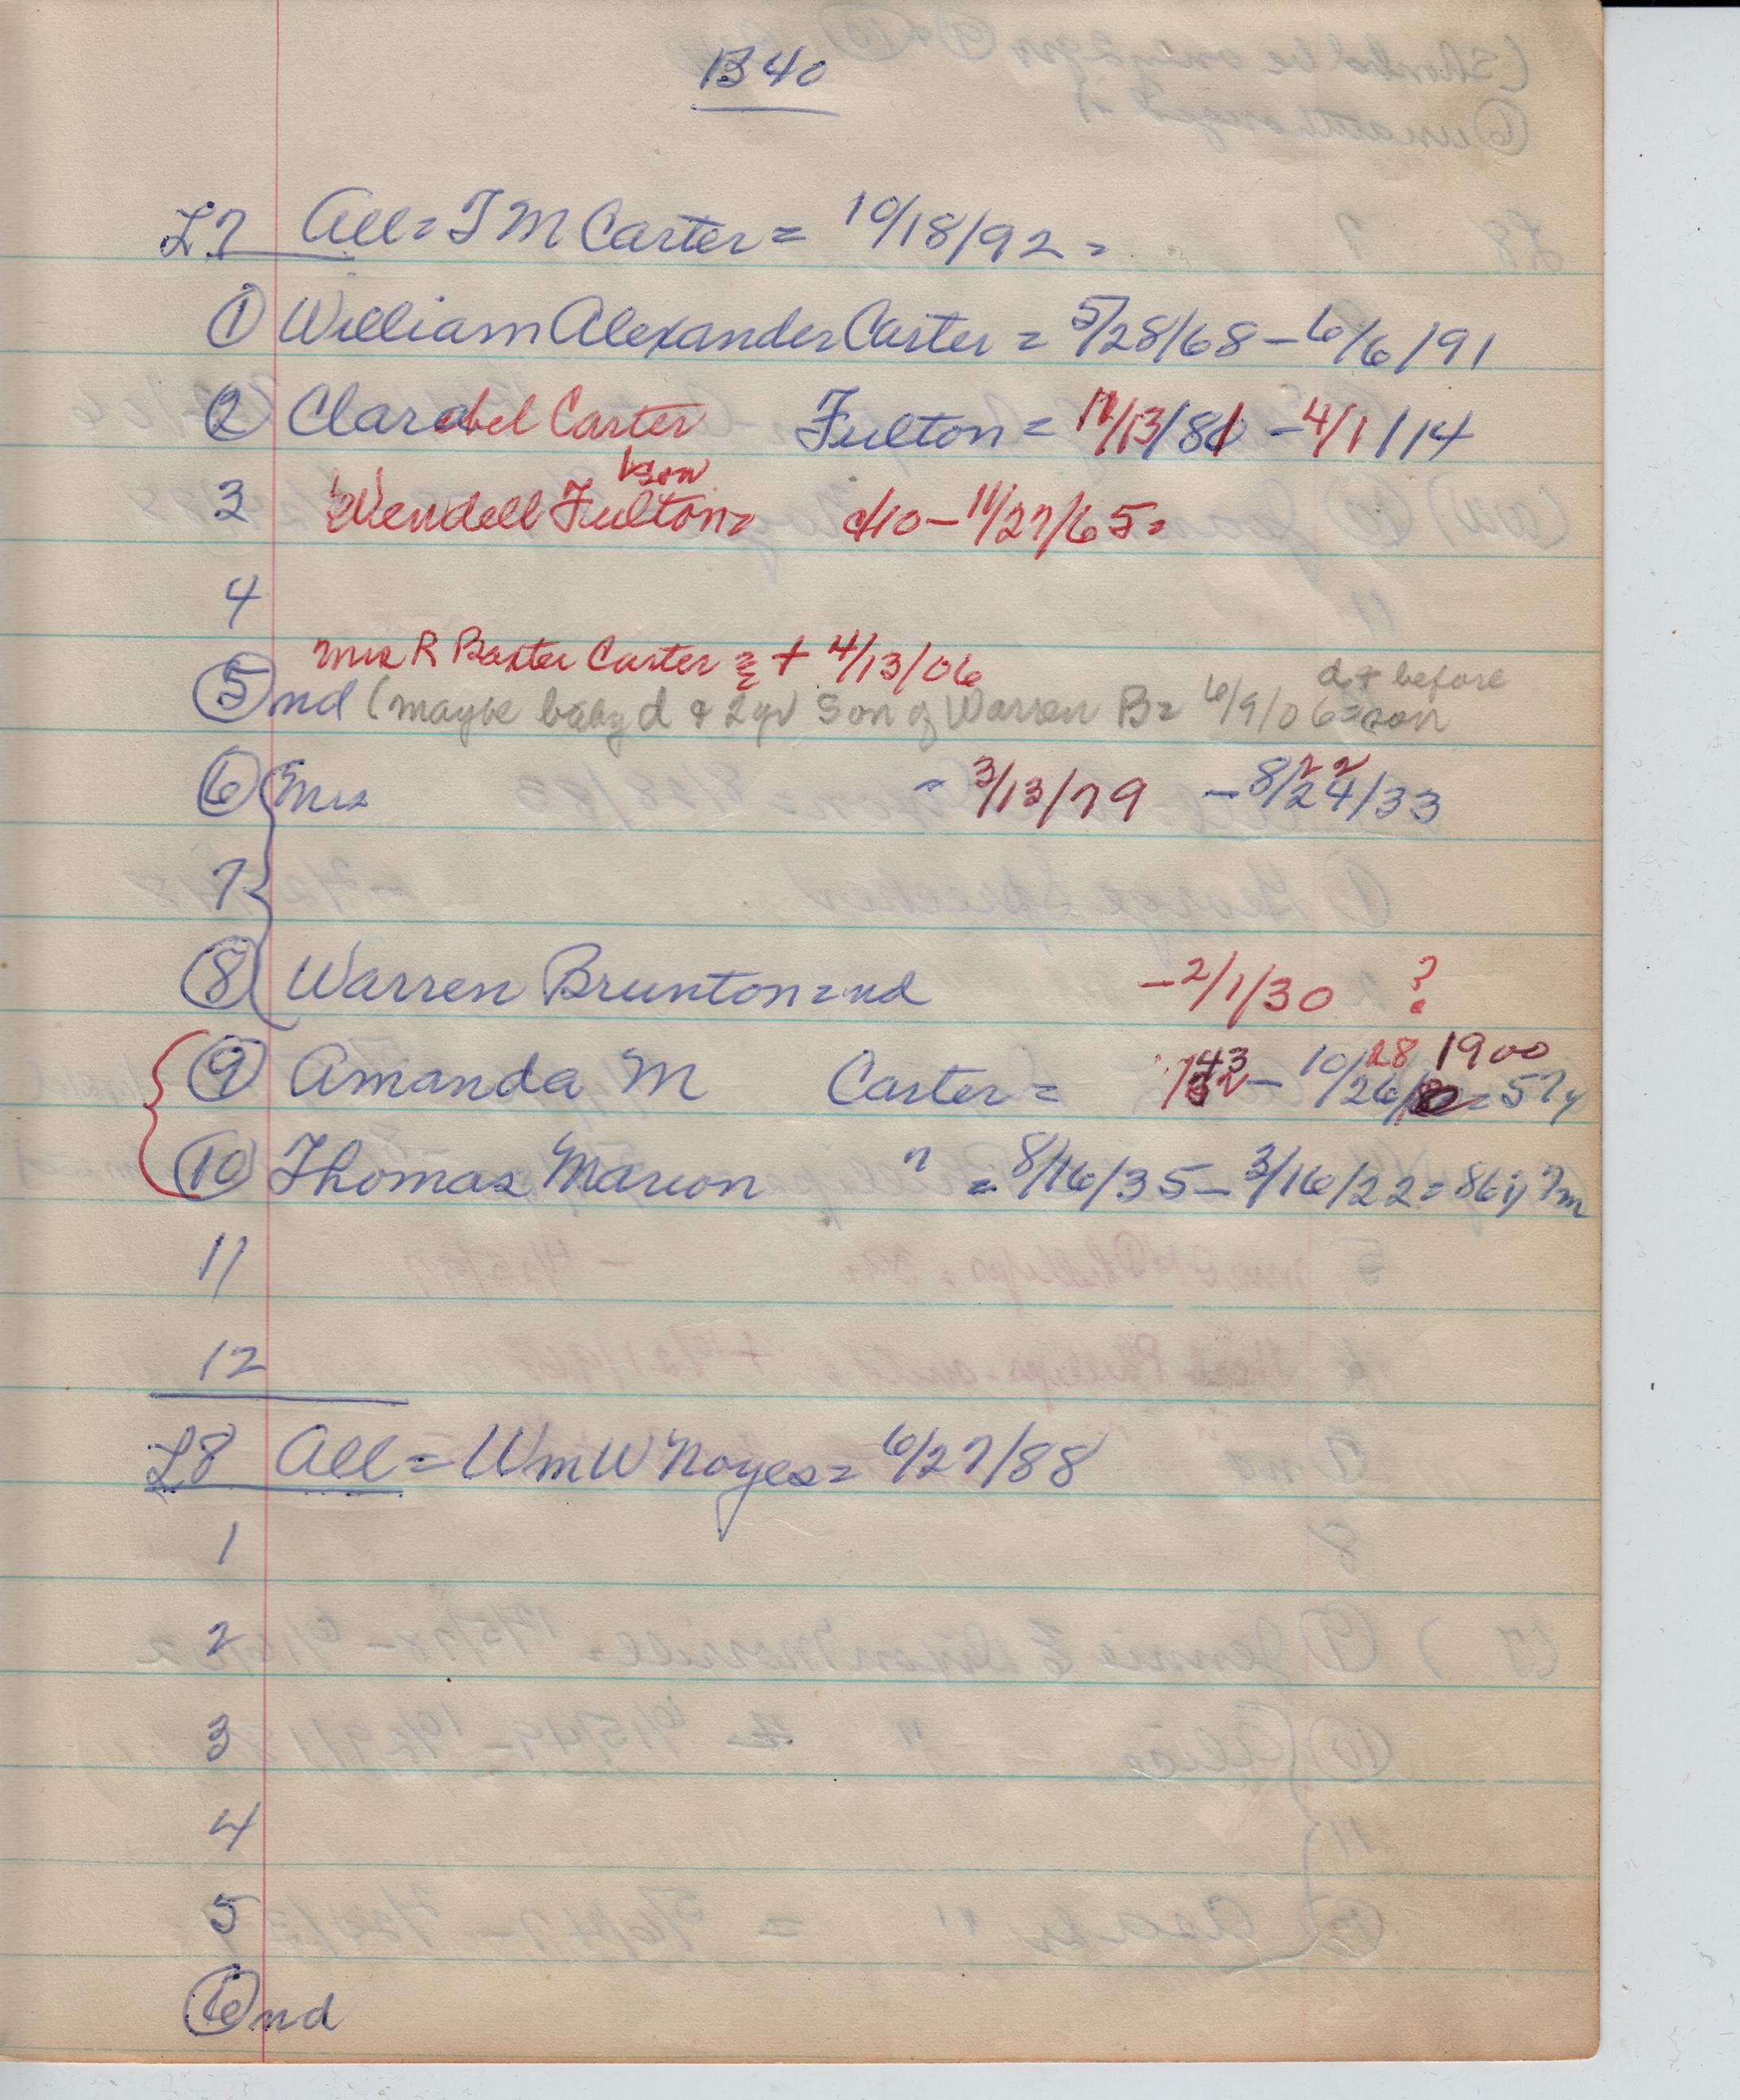 B40
L7 All = T M Carter = 10/18/92 =
① William Alexander Carter = 5/28/68 - 6/6/91
② Clarabel Carter Fulton = 12/13/81 - 4/1/14
son
3 Wendell Fulton = d40 - 11/27/65 =
4
Mrs R Baxter Carter = + 4/13/06
d + before
⑤ nd (maybe baby d + 2yr son of Warren B = 6/9/06 = son
22
⑥ Mrs - 3/13/79 - 8/24/33
7
⑧ Warren Brunton = nd - 2/1/30 ?
43 28 1900
⑨ Amanda M Carter = - 10/26/ = 57y
⑩ Thomas Marion " = 8/16/35 - 3/16/22 = 86y 7m
11
12
L8 All = Wm W Noyes = 6/27/88
1
2
3
4
5
⑥ nd